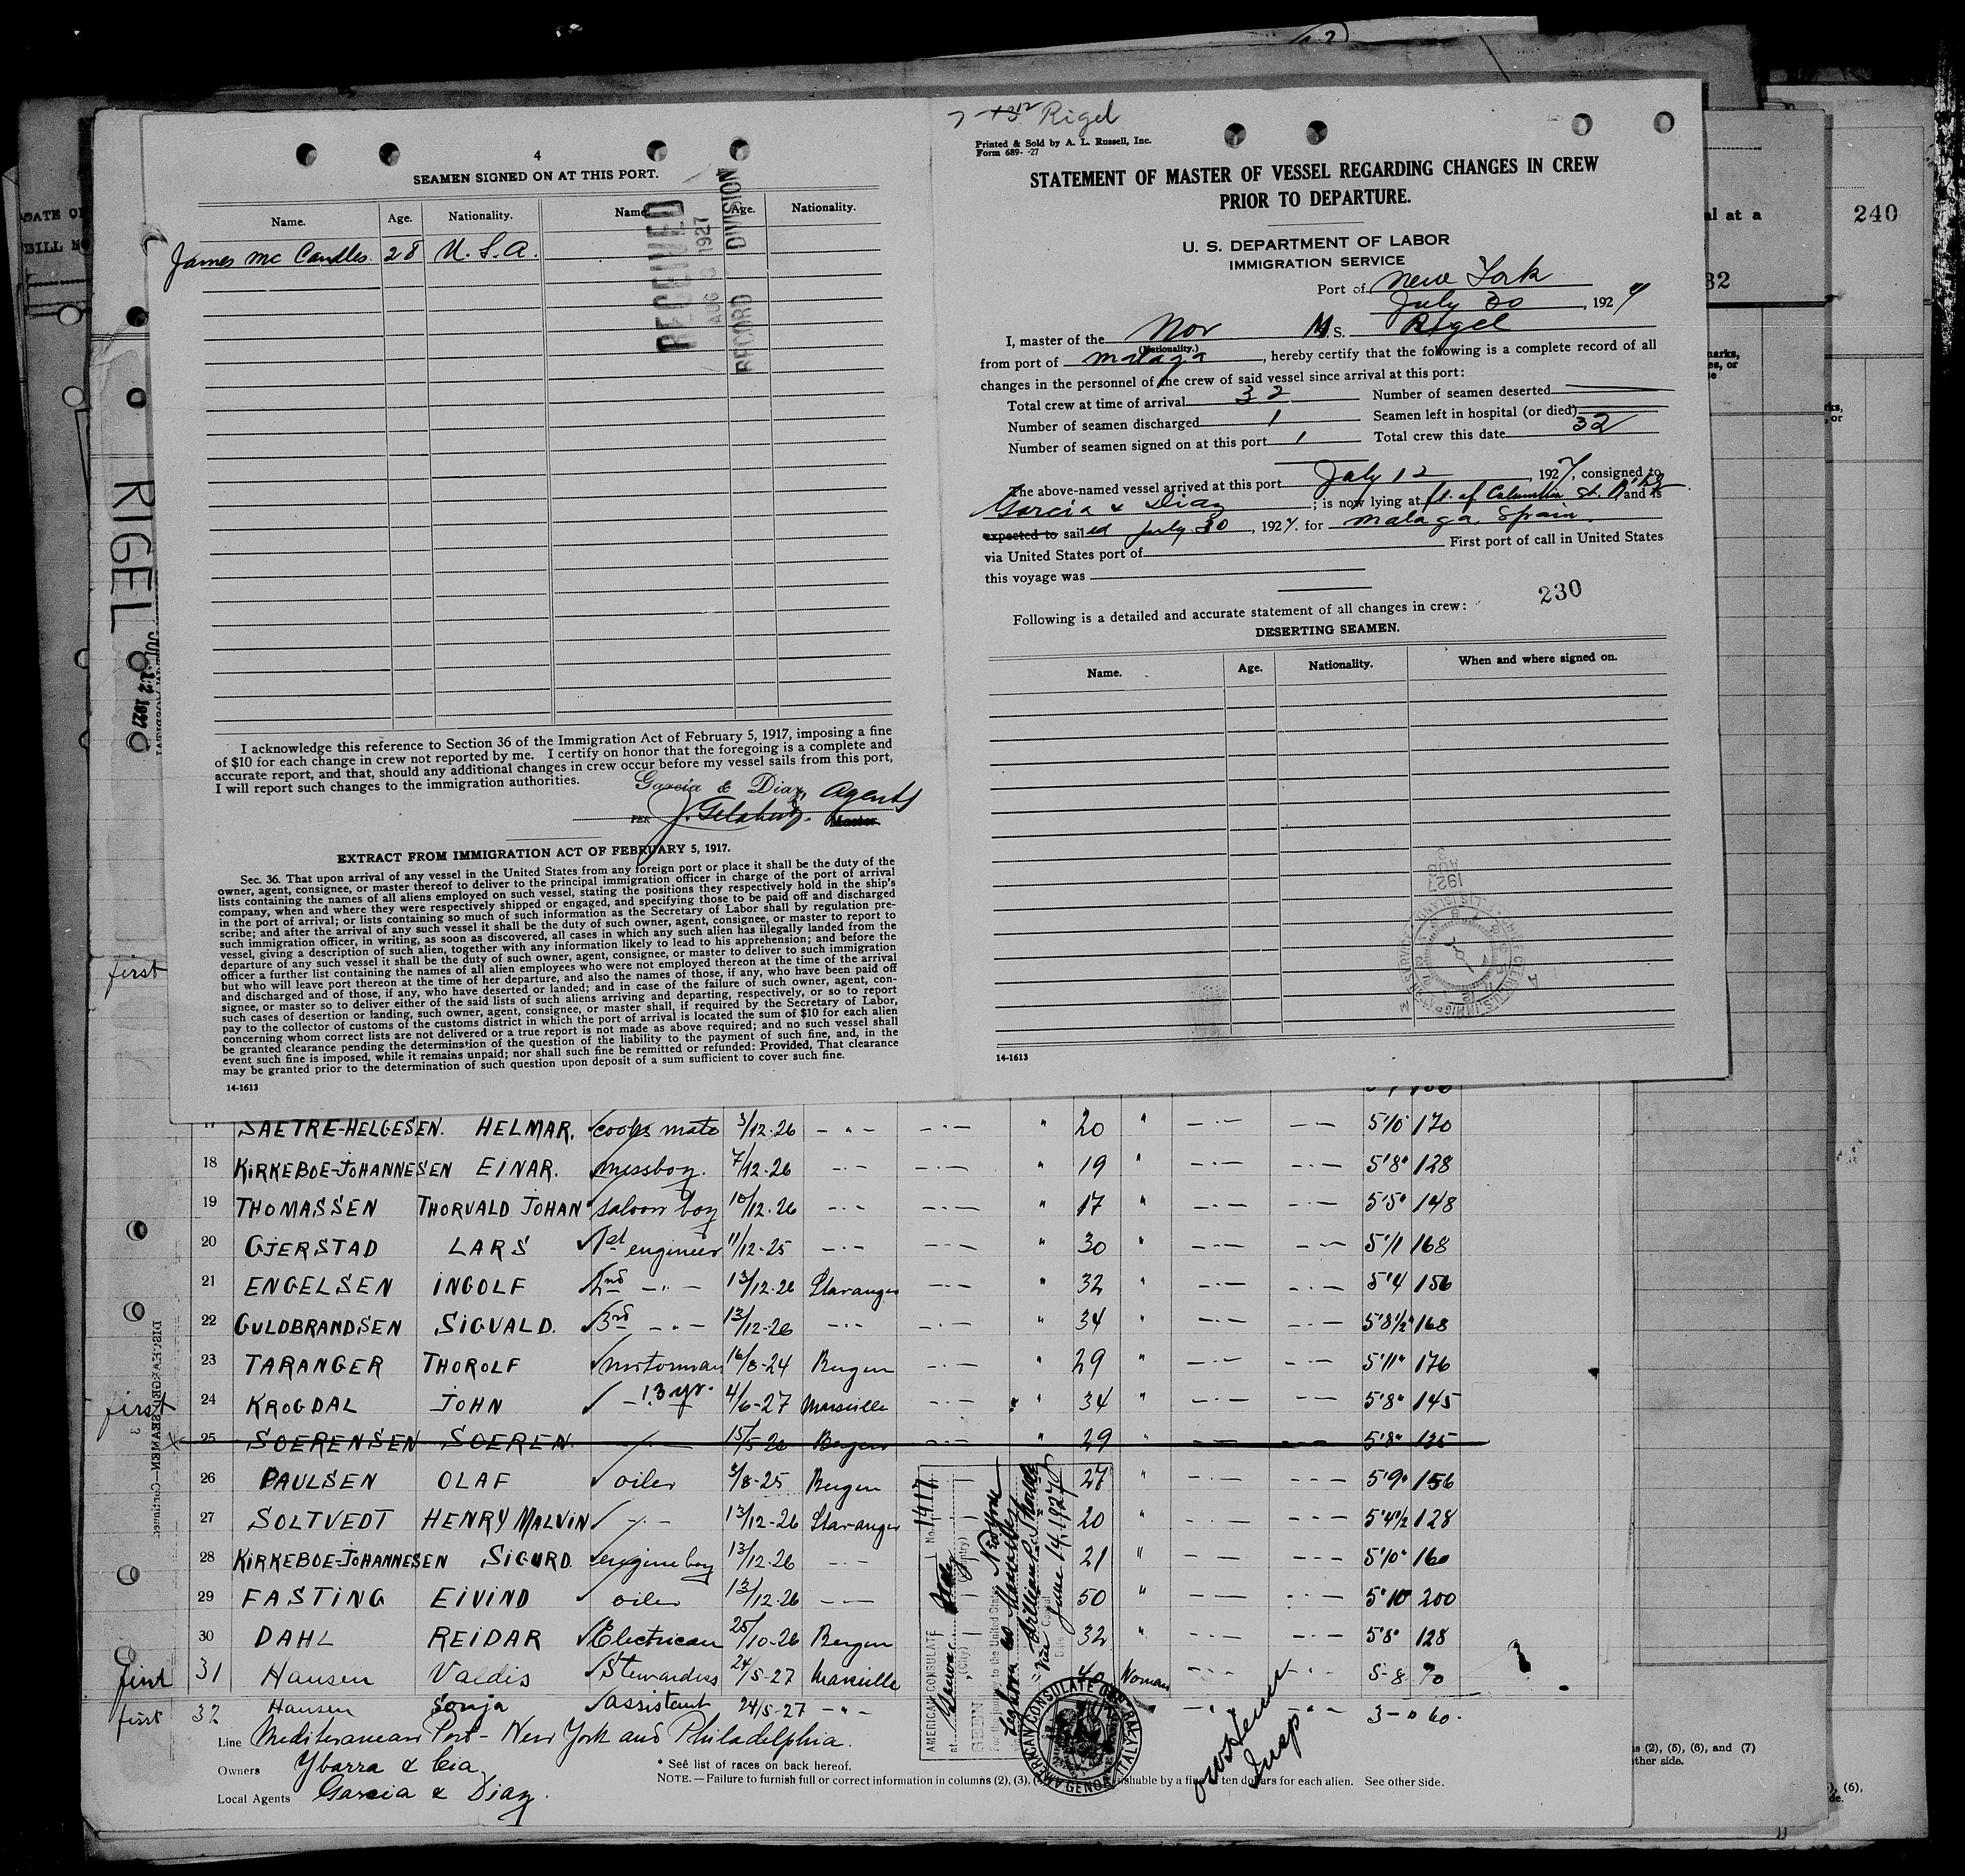 4
SEAMEN SIGNED ON AT THIS PORT.
Name. Age. Nationality. Name. Age. Nationality.
James Mc Candles. 28 U. S. A.
RECEIVED
AUG 3 1927
RECORD DIVISION
I acknowledge this reference to Section 36 of the Immigration Act of February 5, 1917, imposing a fine
of $10 for each change in crew not reported by me. I certify on honor that the foregoing is a complete and
accurate report, and that, should any additional changes in crew occur before my vessel sails from this port,
I will report such changes to the immigration authorities.
Garcia & Diaz, Agents
PER
Master.
EXTRACT FROM IMMIGRATION ACT OF FEBRUARY 5, 1917.
Sec. 36. That upon arrival of any vessel in the United States from any foreign port or place it shall be the duty of the
owner, agent, consignee, or master thereof to deliver to the principal immigration officer in charge of the port of arrival
lists containing the names of all aliens employed on such vessel, stating the positions they respectively hold in the ship's
company, when and where they were respectively shipped or engaged, and specifying those to be paid off and discharged
in the port of arrival; or lists containing so much of such information as the Secretary of Labor shall by regulation pre-
scribe; and after the arrival of any such vessel it shall be the duty of such owner, agent, consignee, or master to report to
such immigration officer, in writing, as soon as discovered, all cases in which any such alien has illegally landed from the
vessel, giving a description of such alien, together with any information likely to lead to his apprehension; and before the
departure of any such vessel it shall be the duty of such owner, agent, consignee, or master to deliver to such immigration
officer a further list containing the names of all alien employees who were not employed thereon at the time of the arrival
but who will leave port thereon at the time of her departure, and also the names of those, if any, who have been paid off
and discharged and of those, if any, who have deserted or landed; and in case of the failure of such owner, agent, con-
signee, or master so to deliver either of the said lists of such aliens arriving and departing, respectively, or so to report
such cases of desertion or landing, such owner, agent, consignee, or master shall, if required by the Secretary of Labor,
pay to the collector of customs of the customs district in which the port of arrival is located the sum of $10 for each alien
concerning whom correct lists are not delivered or a true report is not made as above required; and no such vessel shall
be granted clearance pending the determination of the question of the liability to the payment of such fine, and, in the
event such fine is imposed, while it remains unpaid; nor shall such fine be remitted or refunded: Provided, That clearance
may be granted prior to the determination of such question upon deposit of a sum sufficient to cover such fine.
14-1613
Rigel
Printed & Sold by A. L. Russell, Inc.
Form 689- -27
STATEMENT OF MASTER OF VESSEL REGARDING CHANGES IN CREW
PRIOR TO DEPARTURE.
U. S. DEPARTMENT OF LABOR
IMMIGRATION SERVICE
Port of New York
July 30, 1927
I, master of the Nor M. S. Rigel
(Nationality.)
from port of Malaga, hereby certify that the following is a complete record of all
changes in the personnel of the crew of said vessel since arrival at this port:
Total crew at time of arrival 32 Number of seamen deserted
Number of seamen discharged 1 Seamen left in hospital (or died)
Number of seamen signed on at this port 1 Total crew this date 32
The above-named vessel arrived at this port July 12, 1927, consigned to
Garcia & Diaz; is now lying at ft. of Columbia St. and is
expected to sailed July 30, 1927. for Malaga, Spain.
via United States port of First port of call in United States
this voyage was
230
Following is a detailed and accurate statement of all changes in crew:
DESERTING SEAMEN.
Name. Age. Nationality. When and where signed on.
1927
AUG
3
14-1613
240
RIGEL
JUL 12 1927
first
17 SAETRE-HELGESEN. HELMAR. cooks mate 3/12-26 " 20 " 5'10" 170
18 KIRKEBOE-JOHANNESEN EINAR. messboy. 7/12-26 " 19 " 5'8" 128
19 THOMASSEN THORVALD JOHAN saloon boy 10/12-26 " 17 " 5'5" 148
20 GJERSTAD LARS 1st engineer 11/12-25 " 30 " 5'11 168
21 ENGELSEN INGOLF 2nd 13/12-26 Stavanger " 32 " 5'4 156
22 GULDBRANDSEN SIGVALD. 3rd 13/12-26 " 34 " 5'8 1/2" 168
23 TARANGER THOROLF motorman 16/8-24 Bergen " 29 " 5'11" 176
first 24 KROGDAL JOHN 13 yr. 4/6-27 Marseille " 34 " 5'8" 145
25 SOERENSEN SOEREN 15/5-26 Bergen " 29 " 5'8" 135
26 PAULSEN OLAF oiler 3/8-25 Bergen 27 " 5'9" 156
27 SOLTVEDT HENRY MALVIN 13/12-26 Stavanger 20 " 5'4 1/2 128
28 KIRKEBOE-JOHANNESEN SIGURD engine boy 13/12-26 21 " 5'10" 160
29 FASTING EIVIND oiler 13/12-26 50 " 5'10 200
30 DAHL REIDAR Electrican 25/10-26 Bergen 32 " 5'8" 128
first 31 Hansen Valdis Stewardess 24/5-27 Marseille 40 Woman 5-8
first 32 Hansen Sonja assistent 24/5-27 3-" 60.
Line Mediteranean Port - New York and Philadelphia.
Owners Ybarra & Cia * See list of races on back hereof.
NOTE.—Failure to furnish full or correct information in columns (2), (3), punishable by a fine of ten dollars for each alien. See other side.
Local Agents Garcia & Diaz.
AMERICAN CONSULATE No. 1417
at Genoa Italy
(City) (Country)
SEEN
For the journey to the United States
Vice Consul
Date June 14, 1927
AMERICAN CONSULATE GENERAL GENOA ITALY
Insp
DISCHARGED SEAMEN—Continued.
3
(2), (5), (6), and (7)
other side.